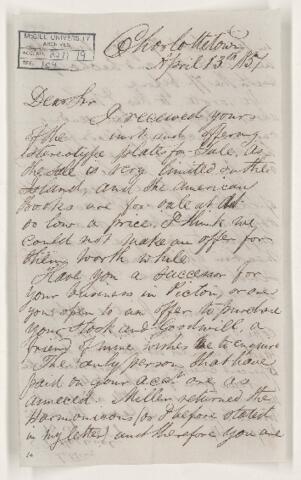 McGILL UNIVERSITY
ARCHIVES
ACC. NO.
REF.
Charlottetown
April 13th 1857
Dear Sir
I received yours
of the inst offering
stereotype plates for Sale, as
the Sale is very limited on the
Island, and the American
books are for sale at
so low a price, I think we
could not make an offer for
them worth while
Have you a successor for
your business in Pictou, or are
you open to an offer to purchase
your Stock and Goodwill, a
friend of mine wishes me to enquire
The only person that have
paid on your acct are as
annexed. Miller returned the
Harmonicons (as I before stated
in my letter) and therefore you are